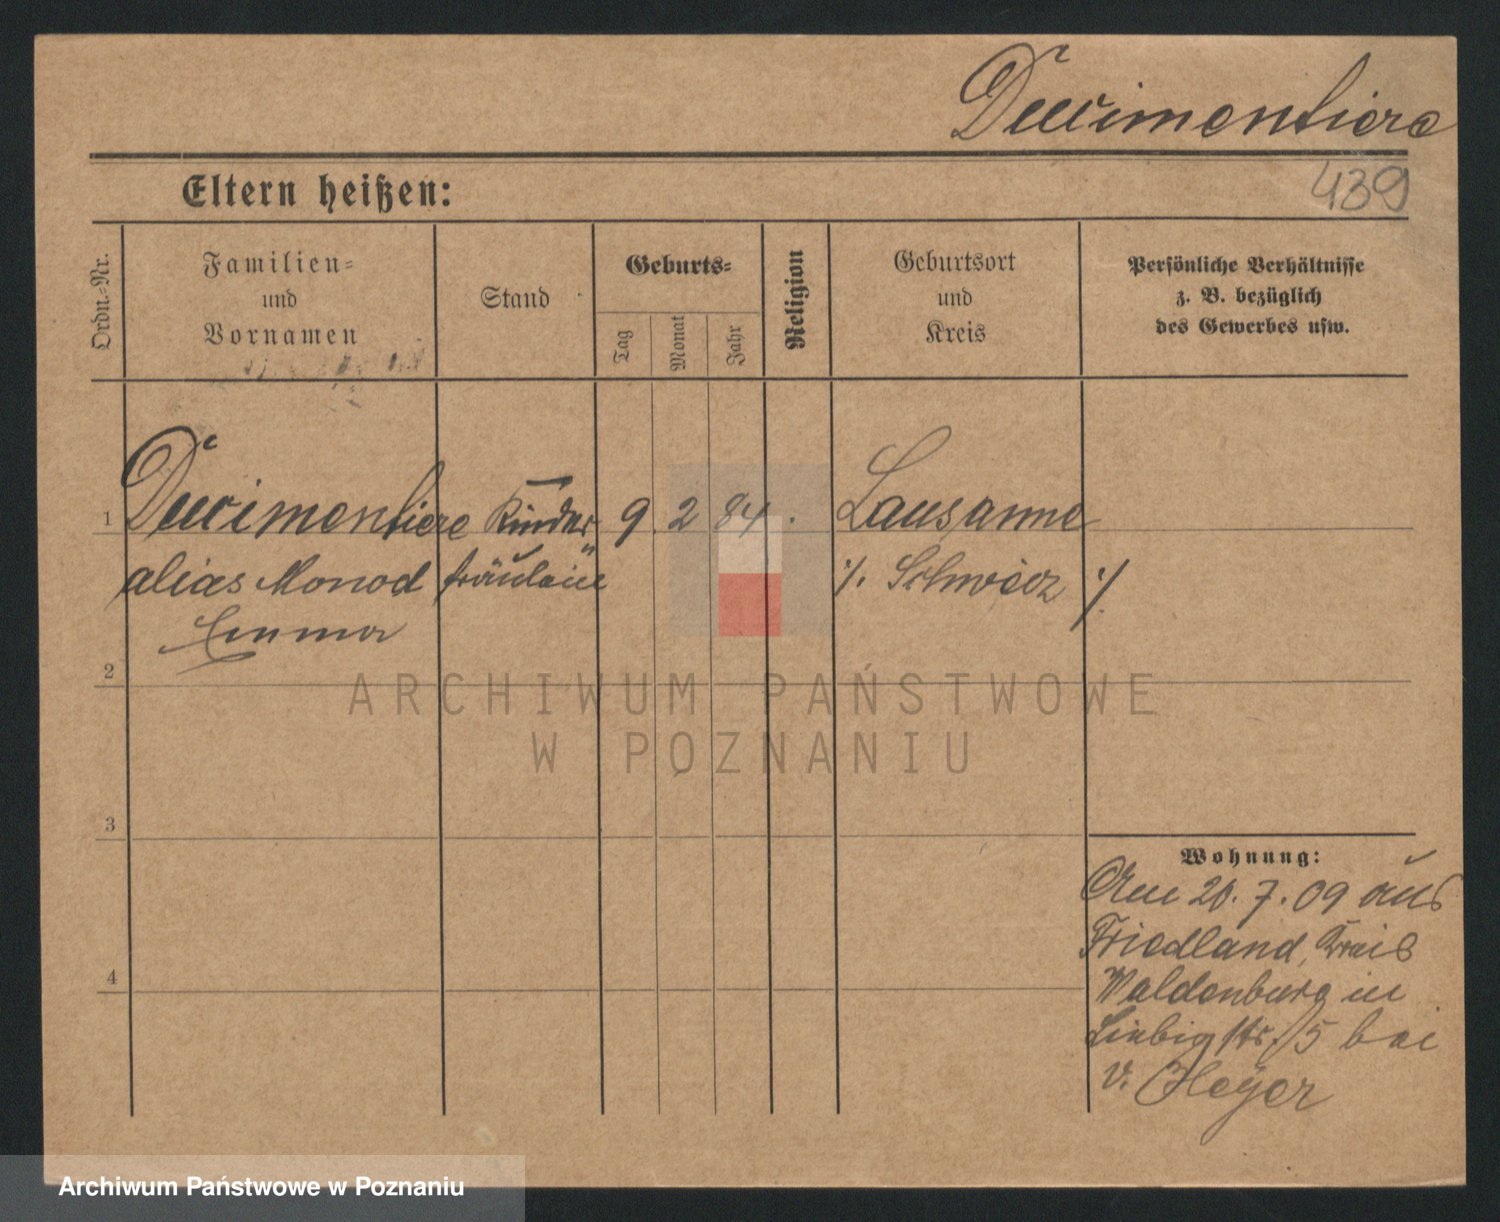 Duvimentiere
439
Eltern heißen:
Ordn.-Nr.
Familien-
und
Vornamen
Stand
Geburts-
Tag
Monat
Jahr
Religion
Geburtsort
und
Kreis
Persönliche Verhältnisse
z. B. bezüglich
des Gewerbes usw.
1 Duvimentiere Kinder 9. 2 84. Lausanne
alias Monod fräulein ·/. Schweiz ·/.
Emma
2
3
4
Wohnung:
Am 20. 7. 09 aus
Friedland, Kreis
Waldenburg in
Liebigstr. 5 bei
v. Heyer
ARCHIWUM PAŃSTWOWE
W POZNANIU
Archiwum Państwowe w Poznaniu